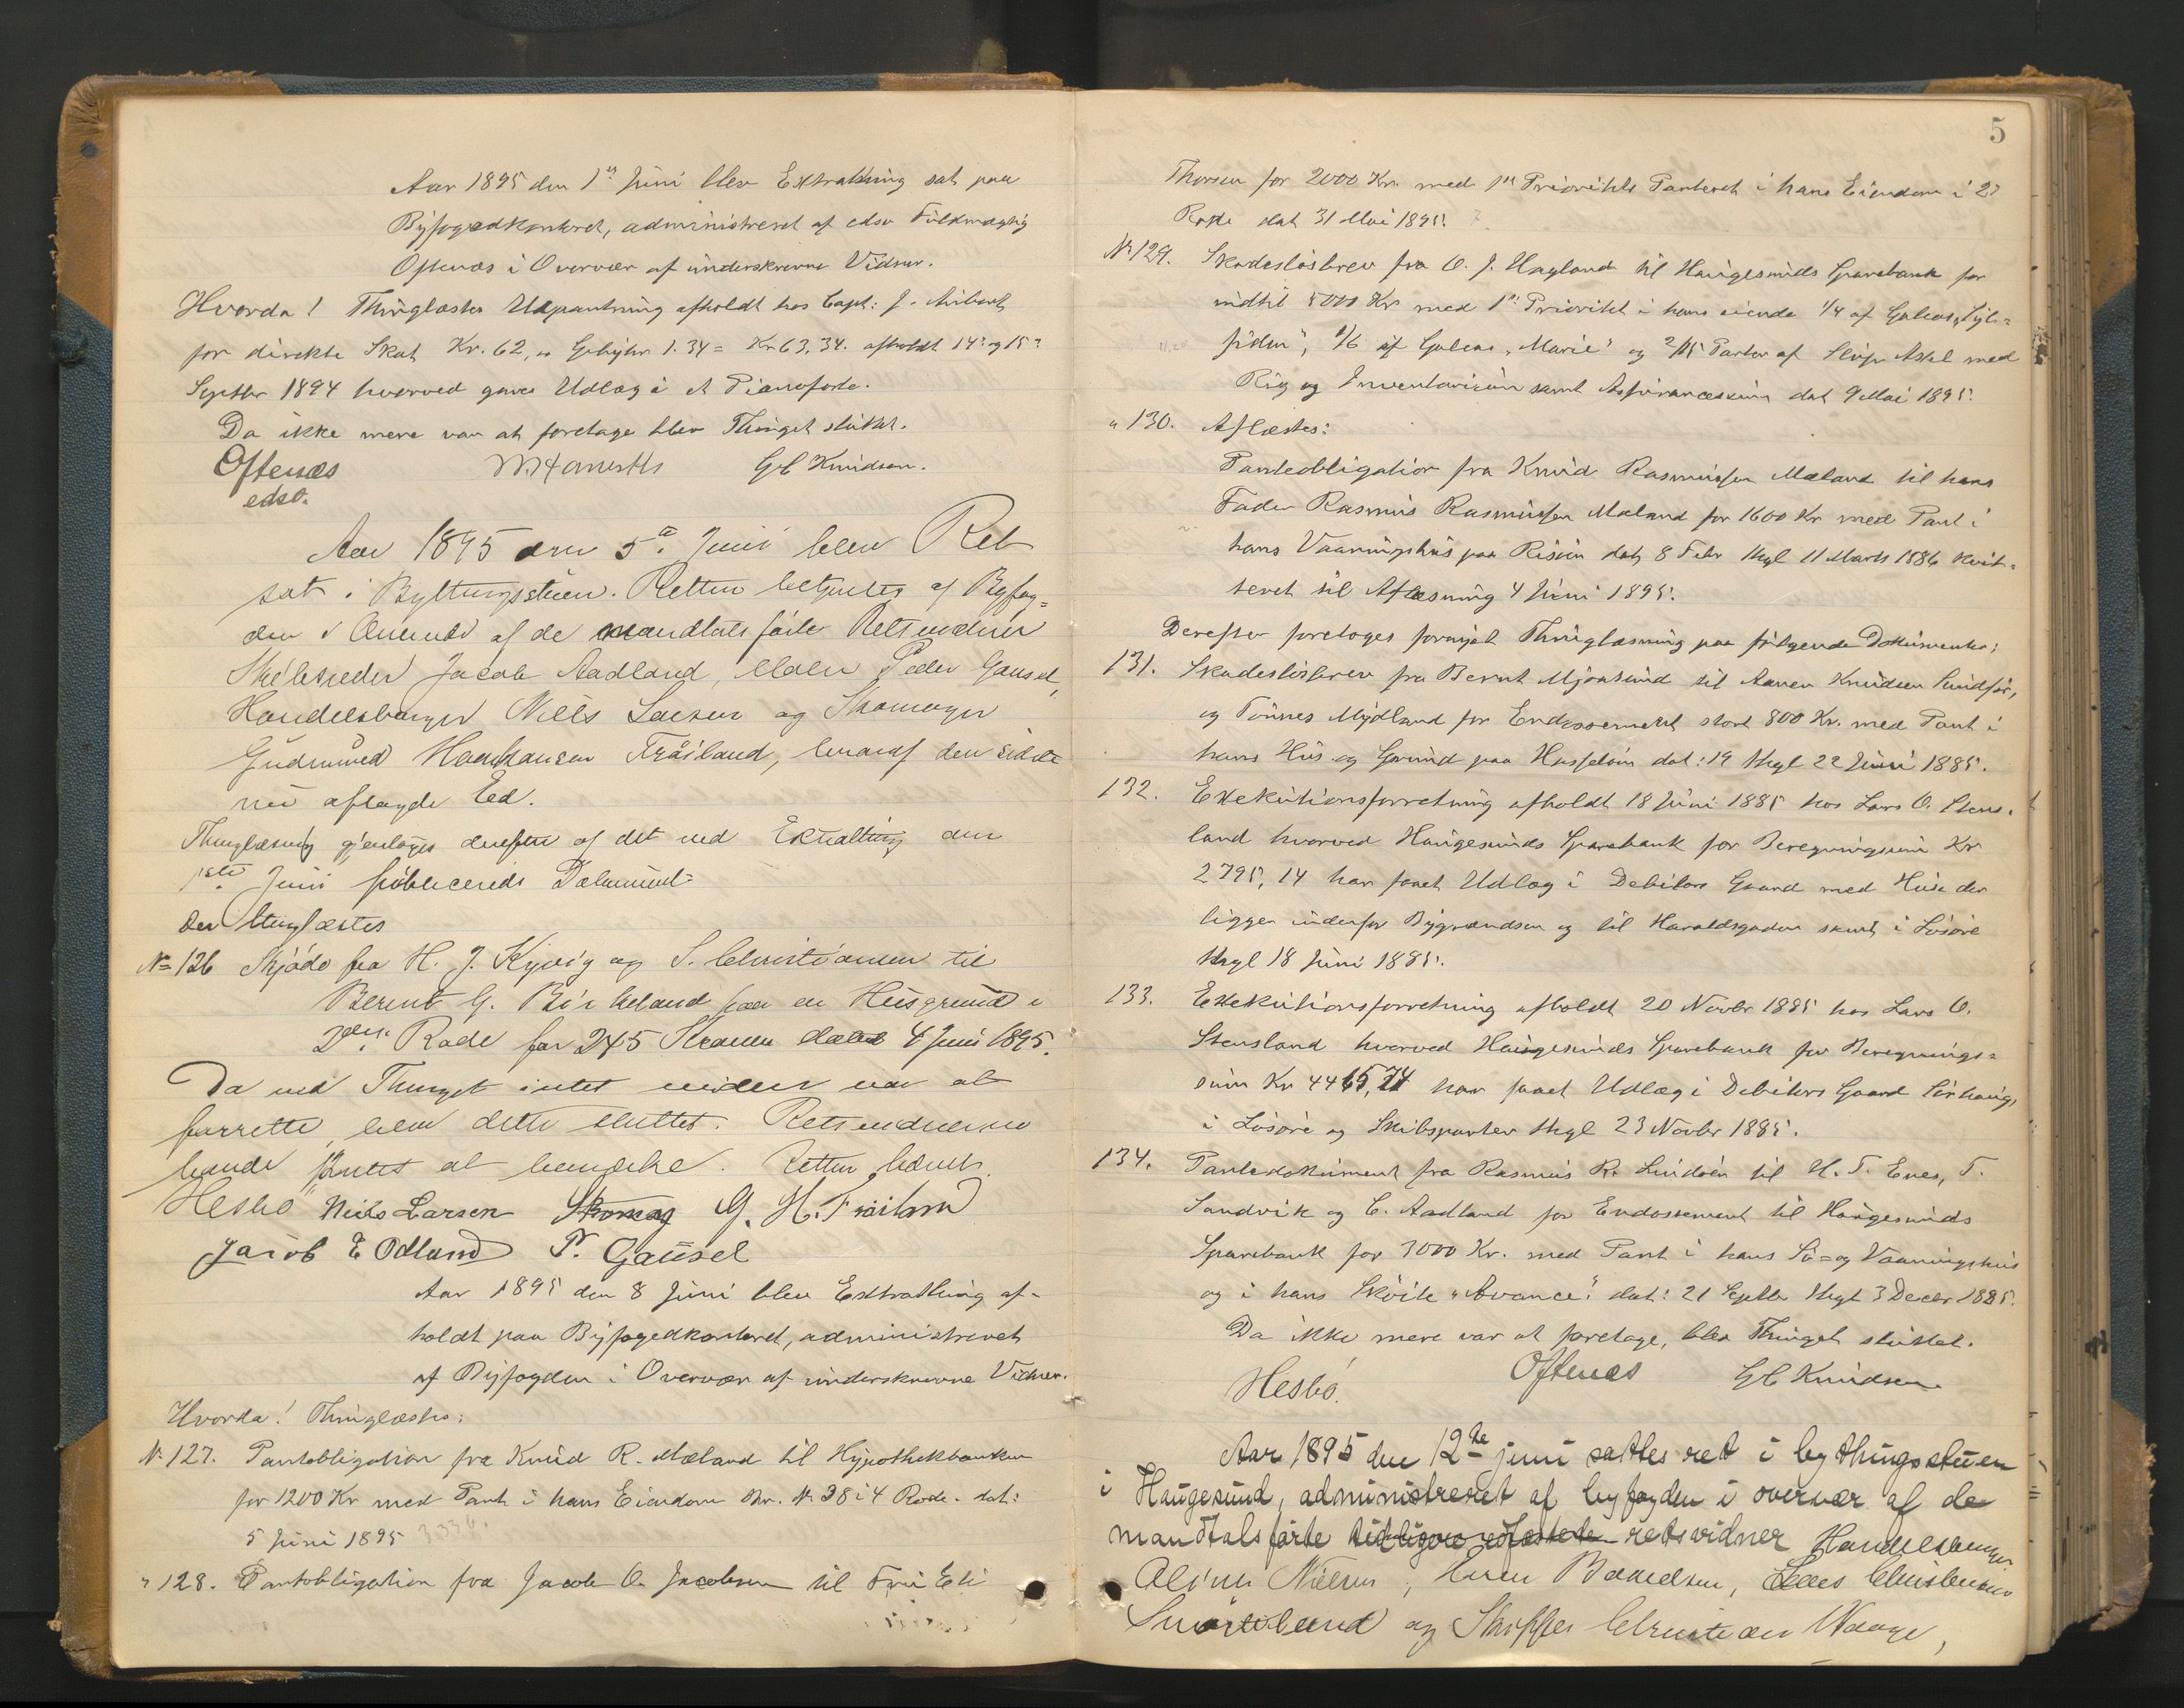 Aar 1895 den 1ste Juni blev Extrathing sat paa
Byfogedkontoret, administreret af edsv Fuldmægtig
Oftenæs i Overvær af underskrevne Vidner.
Hvorda! Thinglæstes Udpantning afholdt hos Capt: J.
for direkte Skat Kr. 62,00 Gebyhr 1.34 = Kr 63,34. afholdt 14de og 15de
Septbr 1894 hvorved gaves Udlæg i et Pianoforte.
Da ikke mere var at foretage blev Thinget sluttet.
Oftenæs GC Knudsen.
edsv.
Aar 1895 den 5te Juni blev Ret
sat i Bythingsstuen. Retten betjentes af Byfog=
den i Overvær af de mandtalsførte Retsvidner
Skibsreder Jacob Aadland, Maler Peder Gausel,
Handelsborger Niels Larsen og Skomager
Gudmund Haakonsen Fröiland, hvoraf den sidste
nu aflagde Eed.
Thinglæsning gjentoges derefter af det ved Extrathing den
1ste Juni publicerede Dokument
Der thinglæstes
No 126 Skjöde fra H. J. Kyvig og S. Christiansen til
Berent G. Birkeland paa en Husgrund i
2den Rode for 245 Kroner dateret 4 Juni 1895.
Da ved Thinget intet videre var at
forrette, blev dette sluttet. Retsvidnerne
havde Intet at bemærke. Retten hævet.
Hesbö Niels Larsen Skomag G. H. Fröiland
Jacob E Odland P. Gausel
Aar 1895 den 8 Juni blev Extrathing af-
holdt paa Byfogedkontoret, administreret
af Byfogden i Overvær af underskrevne Vidner.
Hvorda! Thinglæstes:
No 127. Pantobligation fra Knud R. Mæland til Hypothekbanken
for 1200 Kr med Pant i hans Eiendom Br. No 38 i 4 Rode. dat:
5 Juni 1895 3336.
" 128. Pantobligation fra Jacob O. Jacobsen til Fru Eli
5
Thorsen for 2000 Kr. med 1ste Prioritets Panteret i hans Eiendom i 2den
Rode dat 31 Mai 1895.
No 129. Skadeslösbrev fra O. J. Hagland til Haugesunds Sparebank for
indtil 5000 Kr med 1ste Prioritet i hans eiende 1/4 af Galeas „Syl=
fiden", 1/6 af Galeas „Marie" og 2/15 Parter af Slup Axel med
Rig og Inventarium samt Assurancesum dat 9 Mai 1895.
" 130. Aflæstes:
Panteobligation fra Knud Rasmussen Mæland til hans
Fader Rasmus Rasmussen Mæland for 1600 Kr med Pant i
hans Vaaningshus paa Risöen dat 8 Febr thgl 11 Marts 1886 kvit=
teret til Aflæsning 4 Juni 1895.
Derefter foretoges fornyet Thinglæsning paa fölgende Dokumenter:
131. Skadeslösbrev fra Bernt Mjonsund til Aanen Knudsen Sundför,
og Tönnes Mydland for Endossement stort 800 Kr. med Pant i
hans Hus og Grund paa Hasselöen dat: 19 thgl 22 Juni 1885.
132. Exekutionsforretning afholdt 18 Juni 1885 hos Lars O. Stens=
land hvorved Haugesunds Sparebank for Beregningsum Kr
2795,14 har faaet Udlæg i Debitors Gaard med Huse der
ligger indenfor Bygrændsen og til Haraldsgaden samt i Lösöre
thgl 18 Juni 1885.
133. Exekutionsforretning afholdt 20 Novbr 1885 hos Lars O.
Stensland hvorved Haugesunds Sparebank for Beregnings=
sum Kr 4465,74 har faaet Udlæg i Debitors Gaard Sörhaug,
i Lösöre og Skibsparter thgl 23 Novbr 1885.
134. Pantedokument fra Rasmus R. Lindöen til H. T. Enes, T.
Sandvik og C. Aadland for Endossement til Haugesunds
Sparebank for 3000 Kr. med Pant i hans Sö= og Vaaningshus
og i hans Sköite „Avance". dat: 21 Septbr thgl 3 Decbr 1885.
Da ikke mere var at foretage, blev Thinget sluttet.
Hesbö. Oftenæs GC Knudsen
Aar 1895 den 12te juni sattes ret i bythingsstuen
i Haugesund, administreret af byfogden i overvær af de
mandtalsförte tidligere edfæstede retsvidner Handelsborger
Nilsen, Baardsen, Lars Christensen
og Skipper Christian Waage,